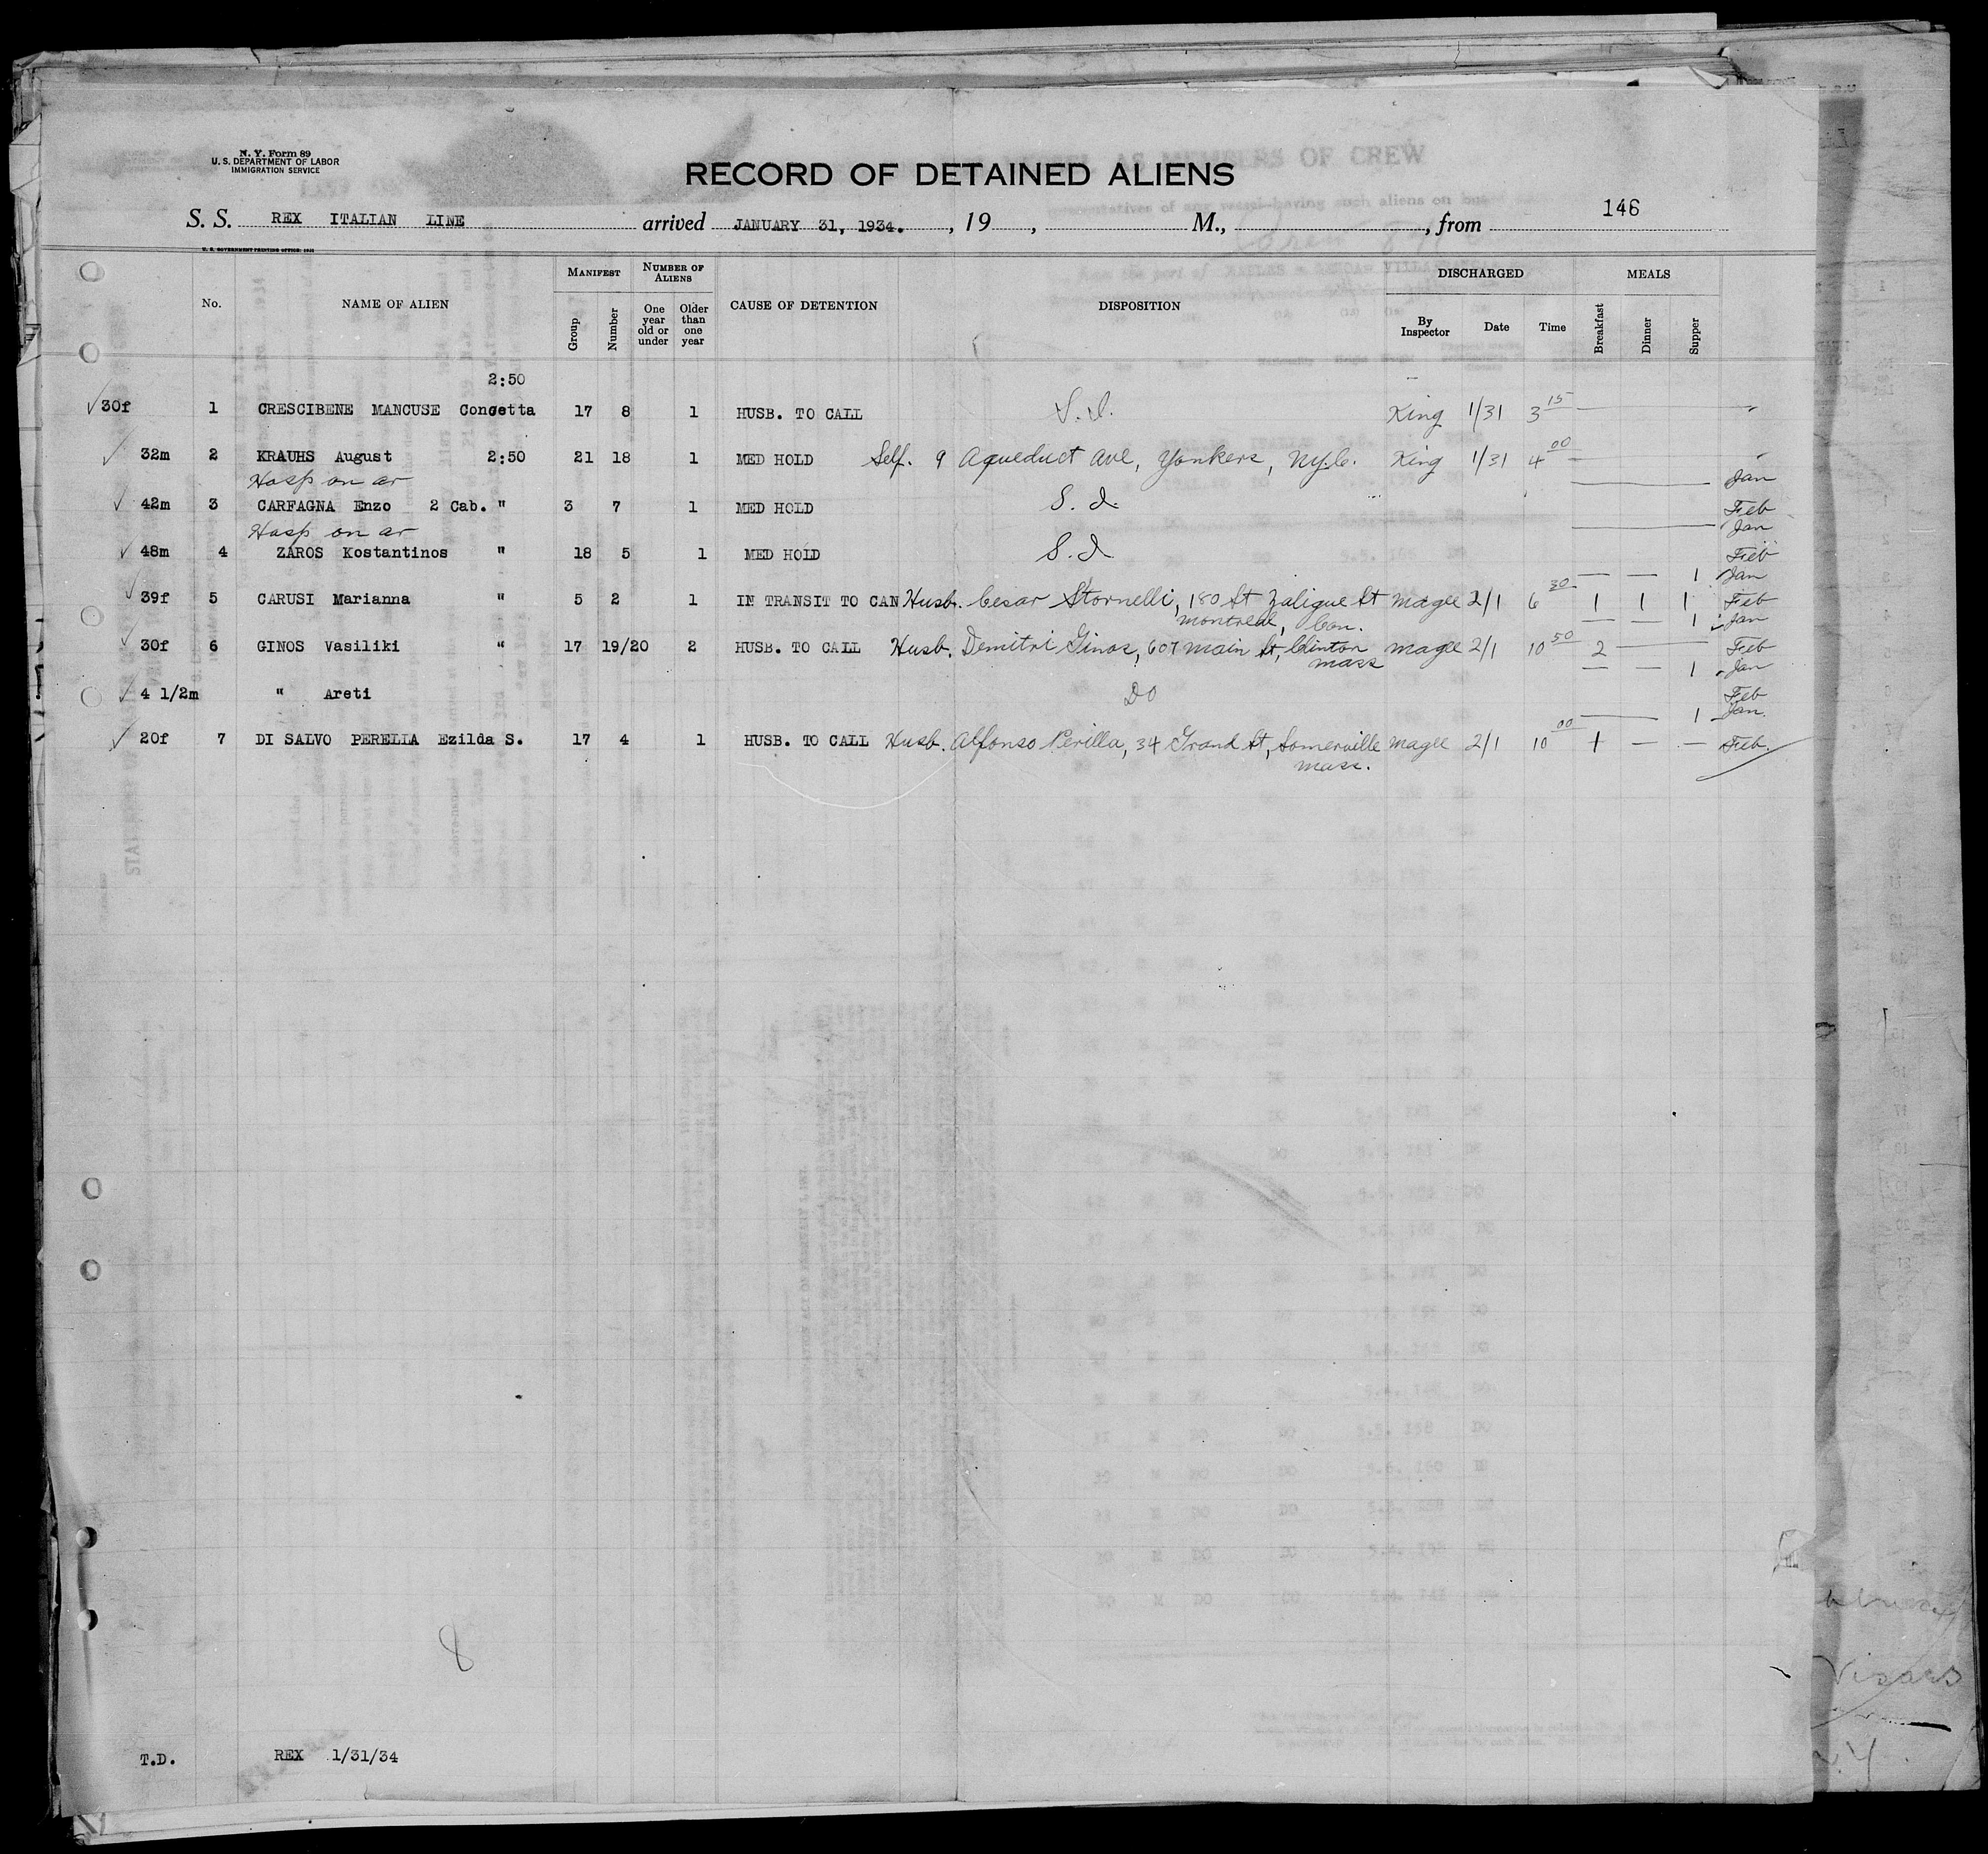 N. Y. Form 89
U. S. DEPARTMENT OF LABOR
IMMIGRATION SERVICE
RECORD OF DETAINED ALIENS
146
S. S. REX ITALIAN LINE arrived JANUARY 31, 1934. , 19 , M., , from
U. S. GOVERNMENT PRINTING OFFICE: 1931
No. NAME OF ALIEN MANIFEST NUMBER OF ALIENS CAUSE OF DETENTION DISPOSITION DISCHARGED MEALS
Group Number One year old or under Older than one year By Inspector Date Time Breakfast Dinner Supper
2:50
30f 1 CRESCIBENE MANCUSE Concetta 17 8 1 HUSB. TO CALL S. I. King 1/31 3 15
32m 2 KRAUHS August 2:50 21 18 1 MED HOLD Self. 9 Aqueduct Ave, Yonkers, N.Y.C. King 1/31 4 00
Hosp on ar Jan
42m 3 CARFAGNA Enzo 2 Cab. " 3 7 1 MED HOLD S. I. Feb
Hosp on ar Jan
48m 4 ZAROS Kostantinos " 18 5 1 MED HOLD S. I. Feb
— — 1 Jan
39f 5 CARUSI Marianna " 5 2 1 IN TRANSIT TO CAN Husb. Cesar Stornelli, 180 St Zalique St Magee 2/1 6 30 1 1 1 Feb
Montreal, Can. — — 1 Jan
30f 6 GINOS Vasiliki " 17 19/20 2 HUSB. TO CALL Husb. Demitri Ginos, 607 Main St, Clinton Magee 2/1 10 50 2 — Feb
Mass — — 1 Jan
4 1/2m " Areti DO Feb
— 1 Jan.
20f 7 DI SALVO PERELLA Ezilda S. 17 4 1 HUSB. TO CALL Husb. Alfonso Perilla, 34 Grand St, Somerville Magee 2/1 10 00 1 — — Feb.
Mass.
8
T.D. REX 1/31/34